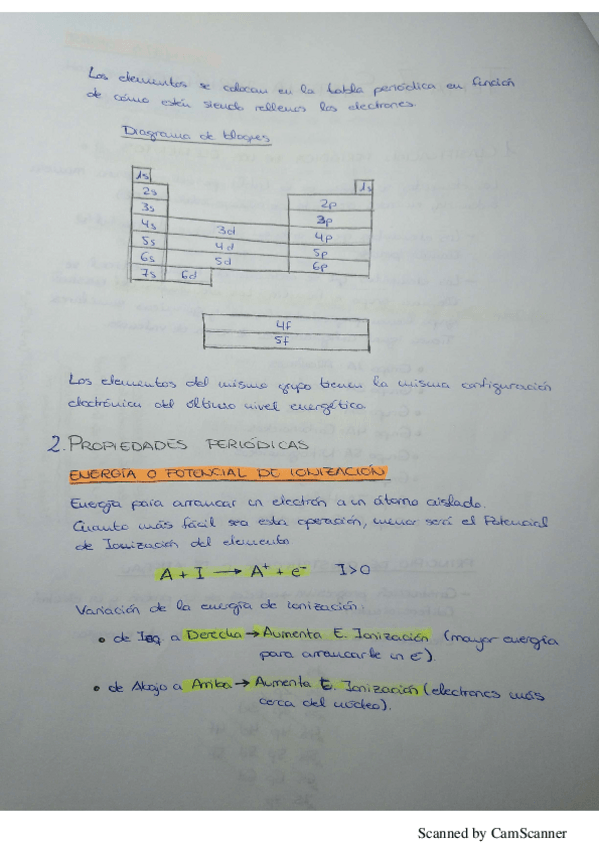 Los elementos se colocan en la tabla periódica en función
de cómo estén siendo rellenos los electrones.
Diagrama de bloques
1s 1s
2s 2p
3s 3p
4s 3d 4p
5s 4d 5p
6s 5d 6p
7s 6d
4f
5f
Los elementos del mismo grupo tienen la misma configuración
electrónica del último nivel energético.
2. PROPIEDADES PERIÓDICAS
ENERGÍA O POTENCIAL DE IONIZACIÓN
Energía para arrancar un electrón a un átomo aislado.
Cuanto más fácil sea esta operación, menor será el Potencial
de Ionización del elemento
A + I → A⁺ + e⁻ I>0
Variación de la energía de ionización:
• de Izq a Derecha → Aumenta E. Ionización (mayor energía
para arrancarle un e⁻).
• de Abajo a Arriba → Aumenta E. Ionización (electrones más
cerca del núcleo).
Scanned by CamScanner